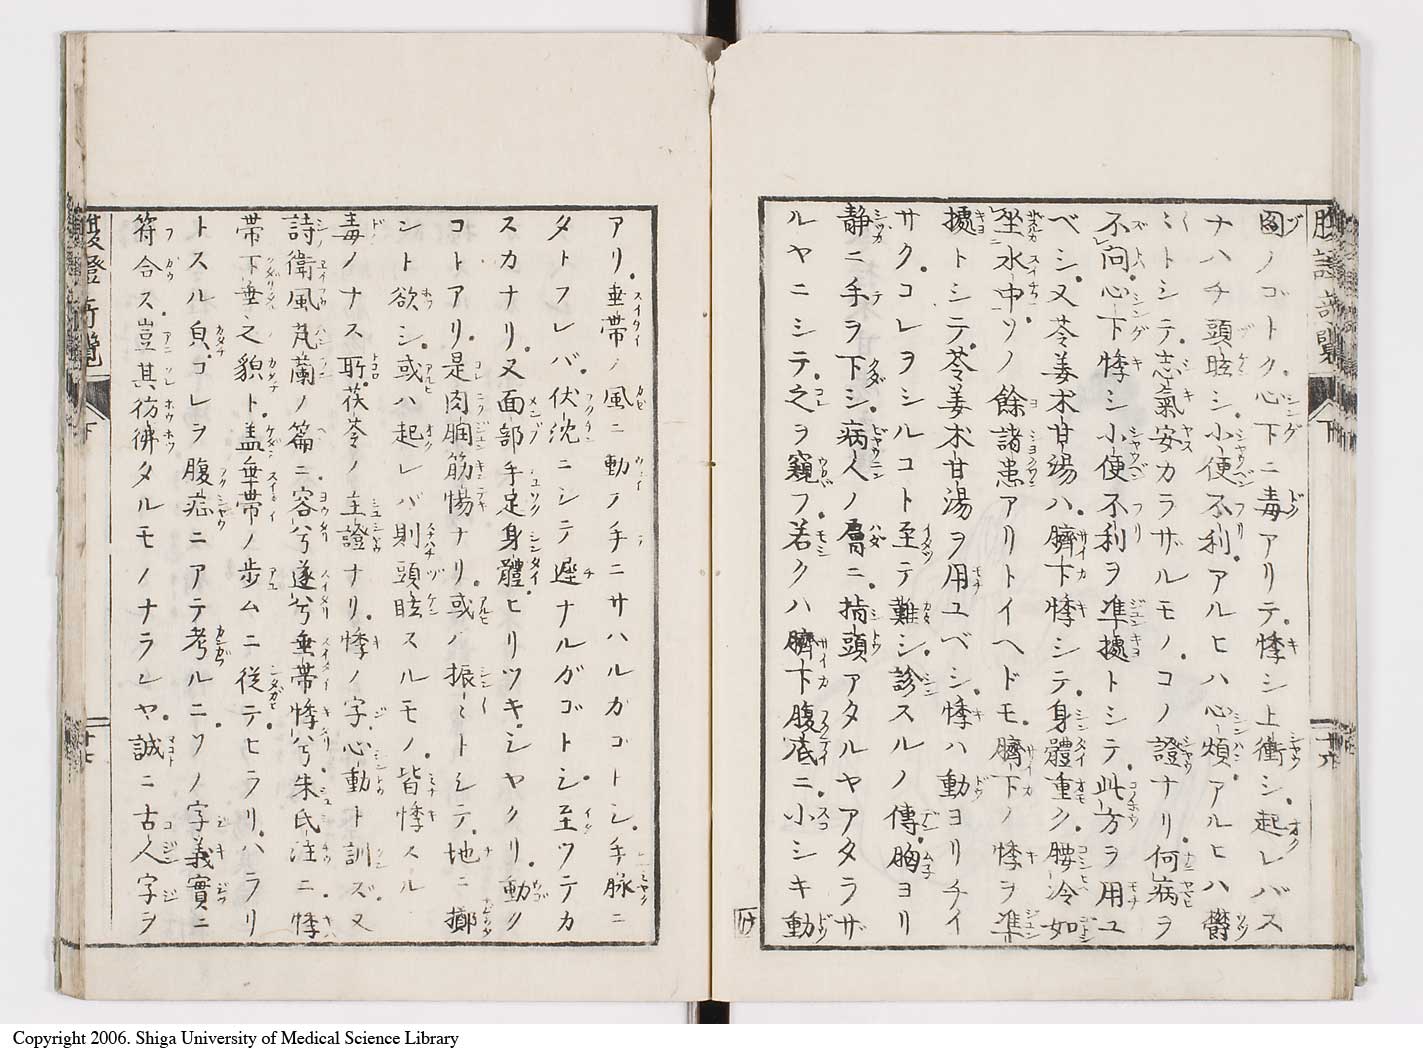 圖ノゴトク心下ニ毒アリテ悸シ上衝シ起レバス
ナハチ頭眩シ小便不利アルヒハ心煩アルヒハ欝
〻トシテ志氣安カラザルモノコノ證ナリ何病ヲ
不問心下悸シ小便不利ヲ凖據トシテ此方ヲ用ユ
ベシ又苓姜朮甘湯ハ臍下悸シテ身體重ク腰冷如
坐水中ソノ餘諸患アリトイヘドモ臍下ノ悸ヲ凖
據トシテ苓姜朮甘湯ヲ用ユベシ悸ハ動ヨリチイ
サクコレヲシルコト至テ難シ診スルノ傳胸ヨリ
静ニ手ヲ下シ病人ノ膚ニ指頭アタルヤアタラザ
ルヤニシテ之ヲ窺フ若クハ臍下腹底ニ小シキ動
アリ垂帶ノ風ニ動ノ手ニサハルガコトシ手脉ニ
タトフレバ伏沈ニシテ遅ナルガゴトシ至ツテカ
スカナリ又面部手足身體ヒリツキシヤクリ動ク
コトアリ是肉𥆧筋惕ナリ或ハ振〻トシテ地ニ擲
ント欲シ或ハ起レバ則頭眩スルモノ皆悸スル
毒ノナス所茯苓ノ主證ナリ悸ノ字心動ト訓ズ又
詩衛風芄蘭ノ篇ニ容兮遂兮垂帶悸兮朱氏注ニ悸
帶下垂之貌ト盖垂帶ノ歩ムニ従テヒラリハラリ
トスル皃コレヲ腹症ニアテ考ルニソノ字義實ニ
符合ス豈其彷彿タルモノナラレヤ誠ニ古人字ヲ
腹證竒覽
下
十六
腹證竒覽
下
十七
Copyright 2006. Shiga University of Medical Science Library